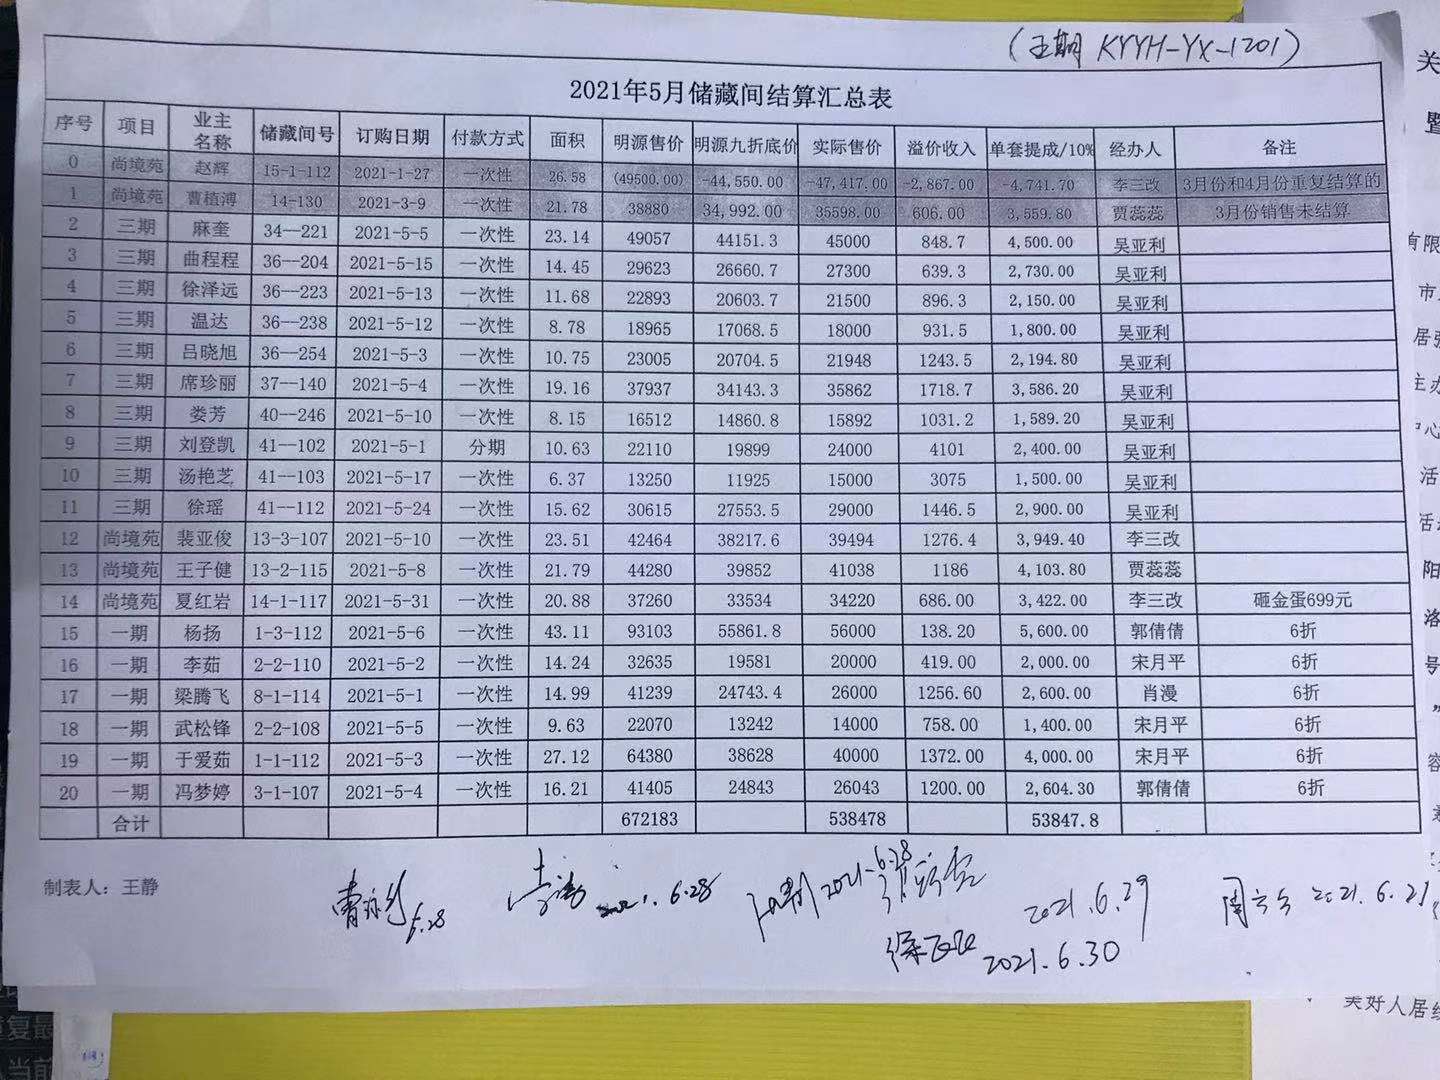 (王期 KYYH-YX-1201)
2021年5月储藏间结算汇总表
序号 项目 业主名称 储藏间号 订购日期 付款方式 面积 明源售价 明源九折底价 实际售价 溢价收入 单套提成/10% 经办人 备注
0 尚境苑 赵辉 15-1-112 2021-1-27 一次性 26.58 (49500.00) -44,550.00 -47,417.00 -2,867.00 -4,741.70 李三改 3月份和4月份重复结算的
1 尚境苑 曹植溥 14-130 2021-3-9 一次性 21.78 38880 34,992.00 35598.00 606.00 3,559.80 贾蕊蕊 3月份销售未结算
2 三期 麻奎 34--221 2021-5-5 一次性 23.14 49057 44151.3 45000 848.7 4,500.00 吴亚利
3 三期 曲程程 36--204 2021-5-15 一次性 14.45 29623 26660.7 27300 639.3 2,730.00 吴亚利
4 三期 徐泽远 36--223 2021-5-13 一次性 11.68 22893 20603.7 21500 896.3 2,150.00 吴亚利
5 三期 温达 36--238 2021-5-12 一次性 8.78 18965 17068.5 18000 931.5 1,800.00 吴亚利
6 三期 吕晓旭 36--254 2021-5-3 一次性 10.75 23005 20704.5 21948 1243.5 2,194.80 吴亚利
7 三期 席珍丽 37--140 2021-5-4 一次性 19.16 37937 34143.3 35862 1718.7 3,586.20 吴亚利
8 三期 娄芳 40--246 2021-5-10 一次性 8.15 16512 14860.8 15892 1031.2 1,589.20 吴亚利
9 三期 刘登凯 41--102 2021-5-1 分期 10.63 22110 19899 24000 4101 2,400.00 吴亚利
10 三期 汤艳芝 41--103 2021-5-17 一次性 6.37 13250 11925 15000 3075 1,500.00 吴亚利
11 三期 徐瑶 41--112 2021-5-24 一次性 15.62 30615 27553.5 29000 1446.5 2,900.00 吴亚利
12 尚境苑 裴亚俊 13-3-107 2021-5-10 一次性 23.51 42464 38217.6 39494 1276.4 3,949.40 李三改
13 尚境苑 王子健 13-2-115 2021-5-8 一次性 21.79 44280 39852 41038 1186 4,103.80 贾蕊蕊
14 尚境苑 夏红岩 14-1-117 2021-5-31 一次性 20.88 37260 33534 34220 686.00 3,422.00 李三改 砸金蛋699元
15 一期 杨扬 1-3-112 2021-5-6 一次性 43.11 93103 55861.8 56000 138.20 5,600.00 郭倩倩 6折
16 一期 李茹 2-2-110 2021-5-2 一次性 14.24 32635 19581 20000 419.00 2,000.00 宋月平 6折
17 一期 梁腾飞 8-1-114 2021-5-1 一次性 14.99 41239 24743.4 26000 1256.60 2,600.00 肖漫 6折
18 一期 武松锋 2-2-108 2021-5-5 一次性 9.63 22070 13242 14000 758.00 1,400.00 宋月平 6折
19 一期 于爱茹 1-1-112 2021-5-3 一次性 27.12 64380 38628 40000 1372.00 4,000.00 宋月平 6折
20 一期 冯梦婷 3-1-107 2021-5-4 一次性 16.21 41405 24843 26043 1200.00 2,604.30 郭倩倩 6折
合计 672183 538478 53847.8
制表人：王静
6.28
2021.6.28
2021.6.28
2021.6.29
2021.6.30
关
暨
有限
市
居
主办
中心
活
活
阳
洛
号
容
美好人居